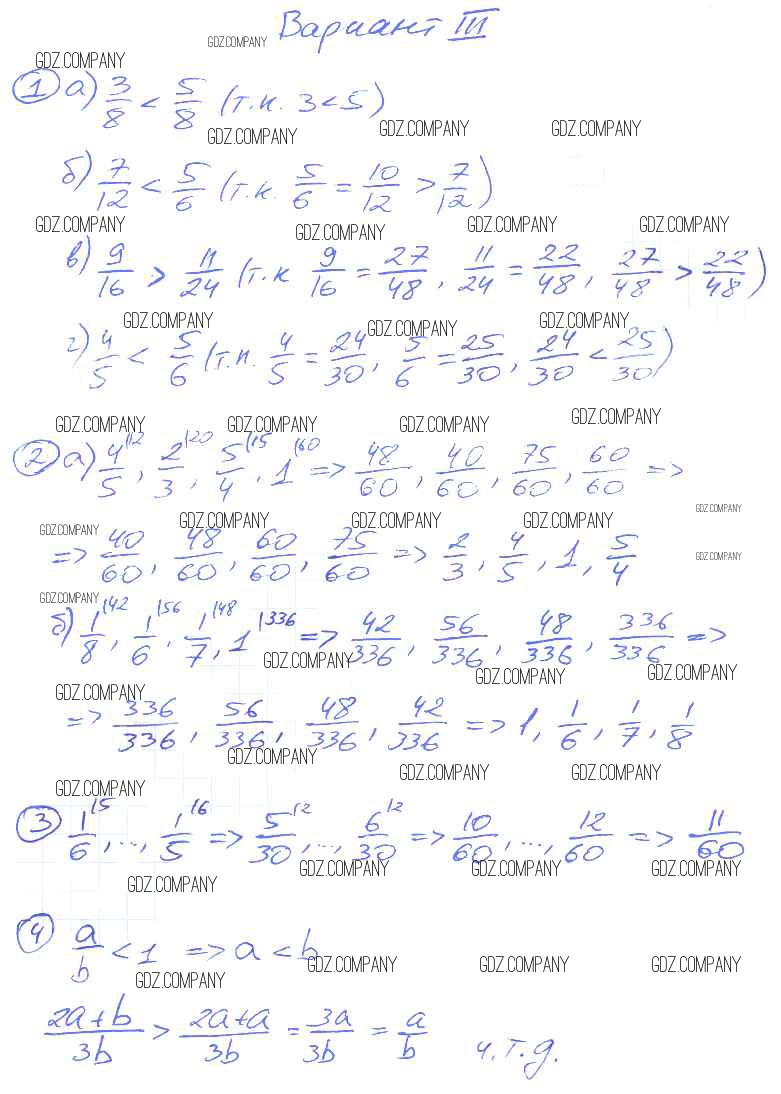 Вариант III
GDZ.COMPANY
GDZ.COMPANY
① а) 3/8 < 5/8 (т.к. 3 < 5)
GDZ.COMPANY GDZ.COMPANY GDZ.COMPANY
б) 7/12 < 5/6 (т.к. 5/6 = 10/12 > 7/12)
GDZ.COMPANY GDZ.COMPANY GDZ.COMPANY GDZ.COMPANY
в) 9/16 > 11/24 (т.к 9/16 = 27/48, 11/24 = 22/48, 27/48 > 22/48)
GDZ.COMPANY GDZ.COMPANY GDZ.COMPANY
г) 4/5 < 5/6 (т.к. 4/5 = 24/30, 5/6 = 25/30, 24/30 < 25/30)
GDZ.COMPANY GDZ.COMPANY GDZ.COMPANY GDZ.COMPANY
② а) 4/5 |12, 2/3 |20, 5/4 |15, 1 |60 => 48/60, 40/60, 75/60, 60/60 =>
GDZ.COMPANY
GDZ.COMPANY GDZ.COMPANY GDZ.COMPANY GDZ.COMPANY
=> 40/60, 48/60, 60/60, 75/60 => 2/3, 4/5, 1, 5/4
GDZ.COMPANY
GDZ.COMPANY
б) 1/8 |42, 1/6 |56, 1/7 |48, 1 |336 => 42/336, 56/336, 48/336, 336/336 =>
GDZ.COMPANY GDZ.COMPANY GDZ.COMPANY
GDZ.COMPANY
=> 336/336, 56/336, 48/336, 42/336 => 1, 1/6, 1/7, 1/8
GDZ.COMPANY GDZ.COMPANY GDZ.COMPANY
GDZ.COMPANY
③ 1/6 |5, ..., 1/5 |6 => 5/30 |2, ..., 6/30 |2 => 10/60, ..., 12/60 => 11/60
GDZ.COMPANY GDZ.COMPANY GDZ.COMPANY GDZ.COMPANY
④ a/b < 1 => a < b
GDZ.COMPANY GDZ.COMPANY GDZ.COMPANY GDZ.COMPANY
2a+b/3b > 2a+a/3b = 3a/3b = a/b ч.т.д.